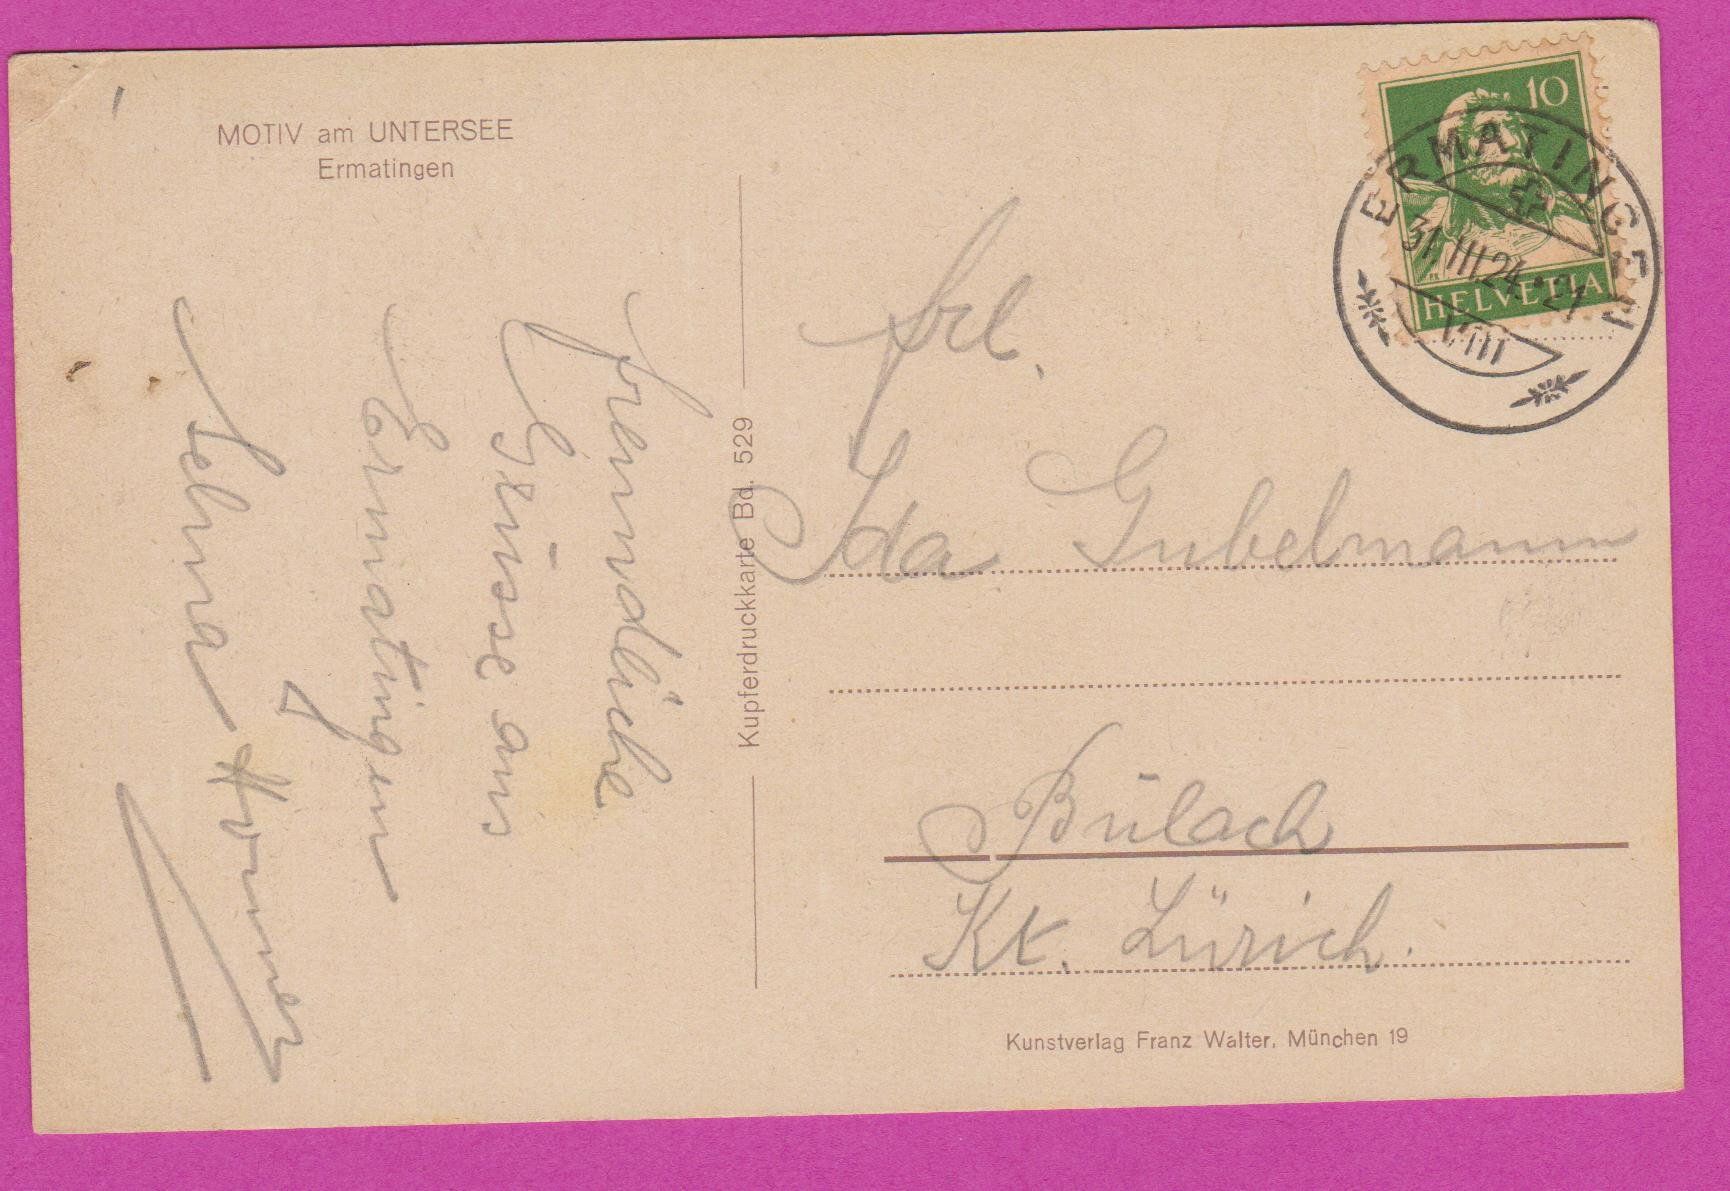 MOTIV am UNTERSEE
Ermatingen
10
HELVETIA
ERMATINGEN
31.III.24.-21
VIII
Frl.
Ida Gubelmann
Bülach
Kt. Zürich.
Freundliche
Grüsse aus
Ermatingen
Selma
Kupferdruckkarte Bd. 529
Kunstverlag Franz Walter, München 19